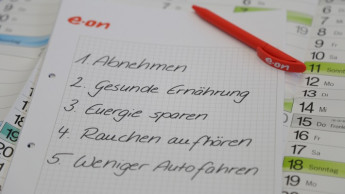 e·on
1. Abnehmen
2. Gesunde Ernährung
3. Energie sparen
4. Rauchen aufhören
5. Weniger Autofahren
e·on
9 Fr
10 Sa
11 Sonntag
12 Mo
13 Di
14 Mi
15 Do
16 Fr
17 Sa
18 Sonntag
19 Mo
20 Di